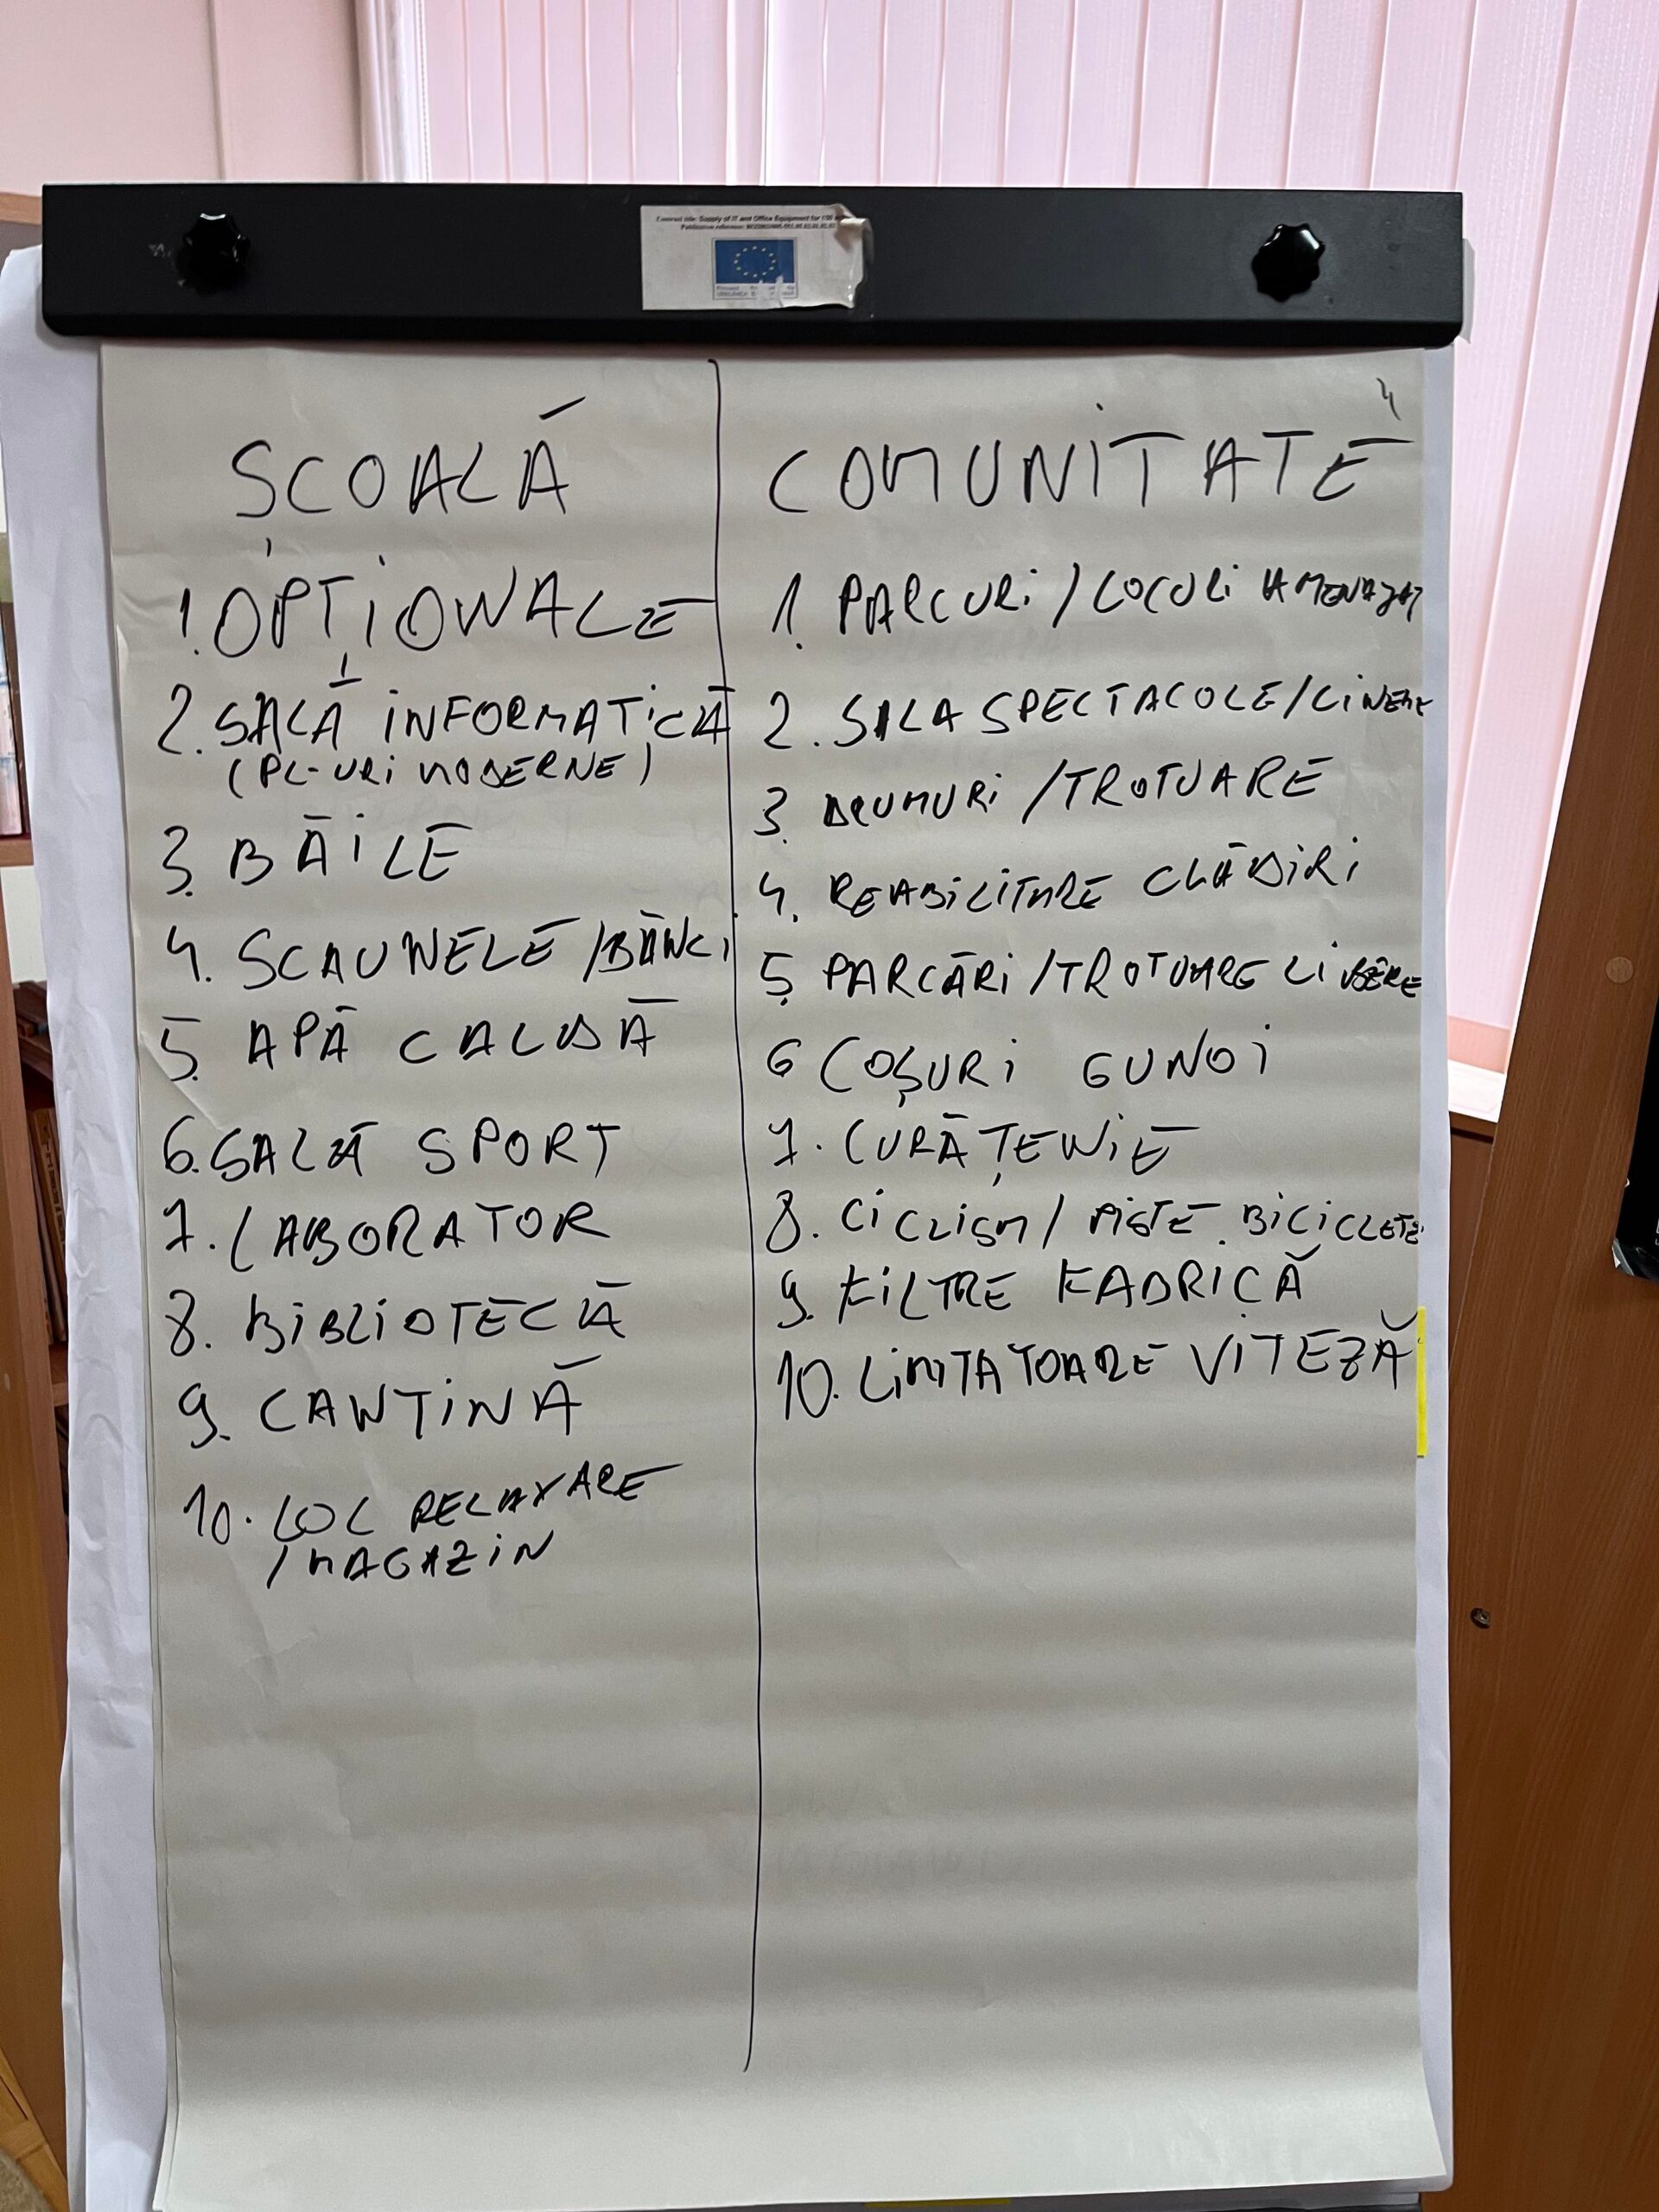 Contract title: Supply of IT and Office Equipment for
Publication reference:
ȘCOALĂ
1. OPȚIONALE
2. SALĂ INFORMATICĂ
(PC-URI MODERNE)
3. BĂILE
4. SCAUNELE /BĂNCI
5. APĂ CALDĂ
6. SALĂ SPORT
7. LABORATOR
8. BIBLIOTECĂ
9. CANTINĂ
10. LOC RELAXARE
/MAGAZIN
COMUNITATE
1. PARCURI / LOCURI AMENAJAT
2. SALA SPECTACOLE/CINEMA
3. DRUMURI /TROTUARE
4. REABILITARE CLĂDIRI
5. PARCĂRI /TROTUARE LIBERE
6 COȘURI GUNOI
7. CURĂȚENIE
8. CICLISM / PISTE BICICLETE
9. FILTRE FABRICĂ
10. LIMITATOARE VITEZĂ